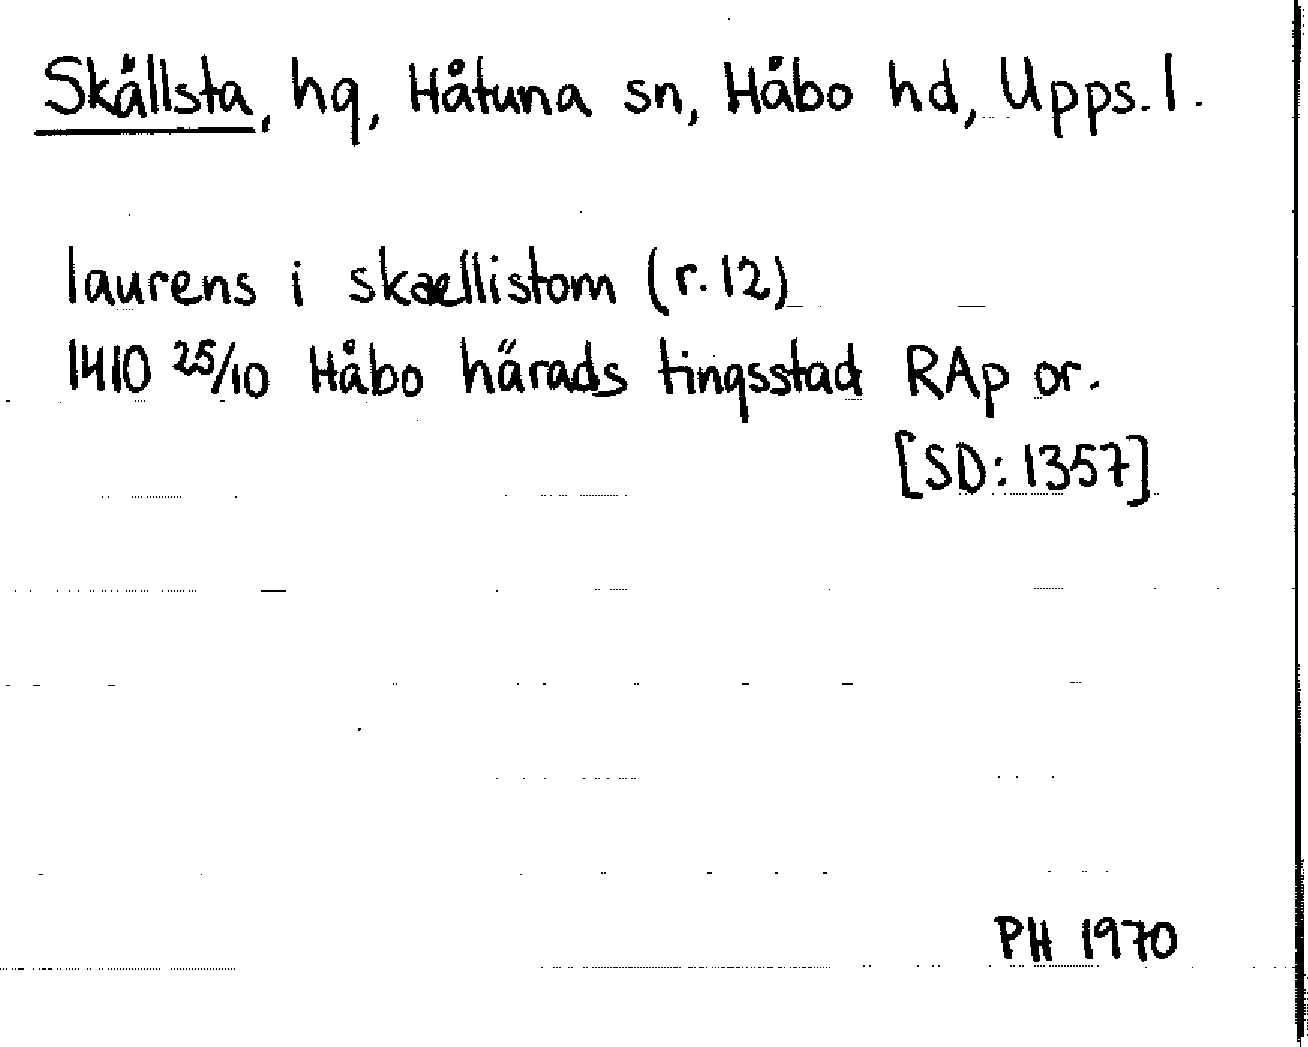 Skållsta, hg, Håtuna sn, Håbo hd, Upps. l.
laurens i skaellistom (r. 12)
1410 25/10 Håbo härads tingsstad RAp or.
[SD: 1357]
PH 1970